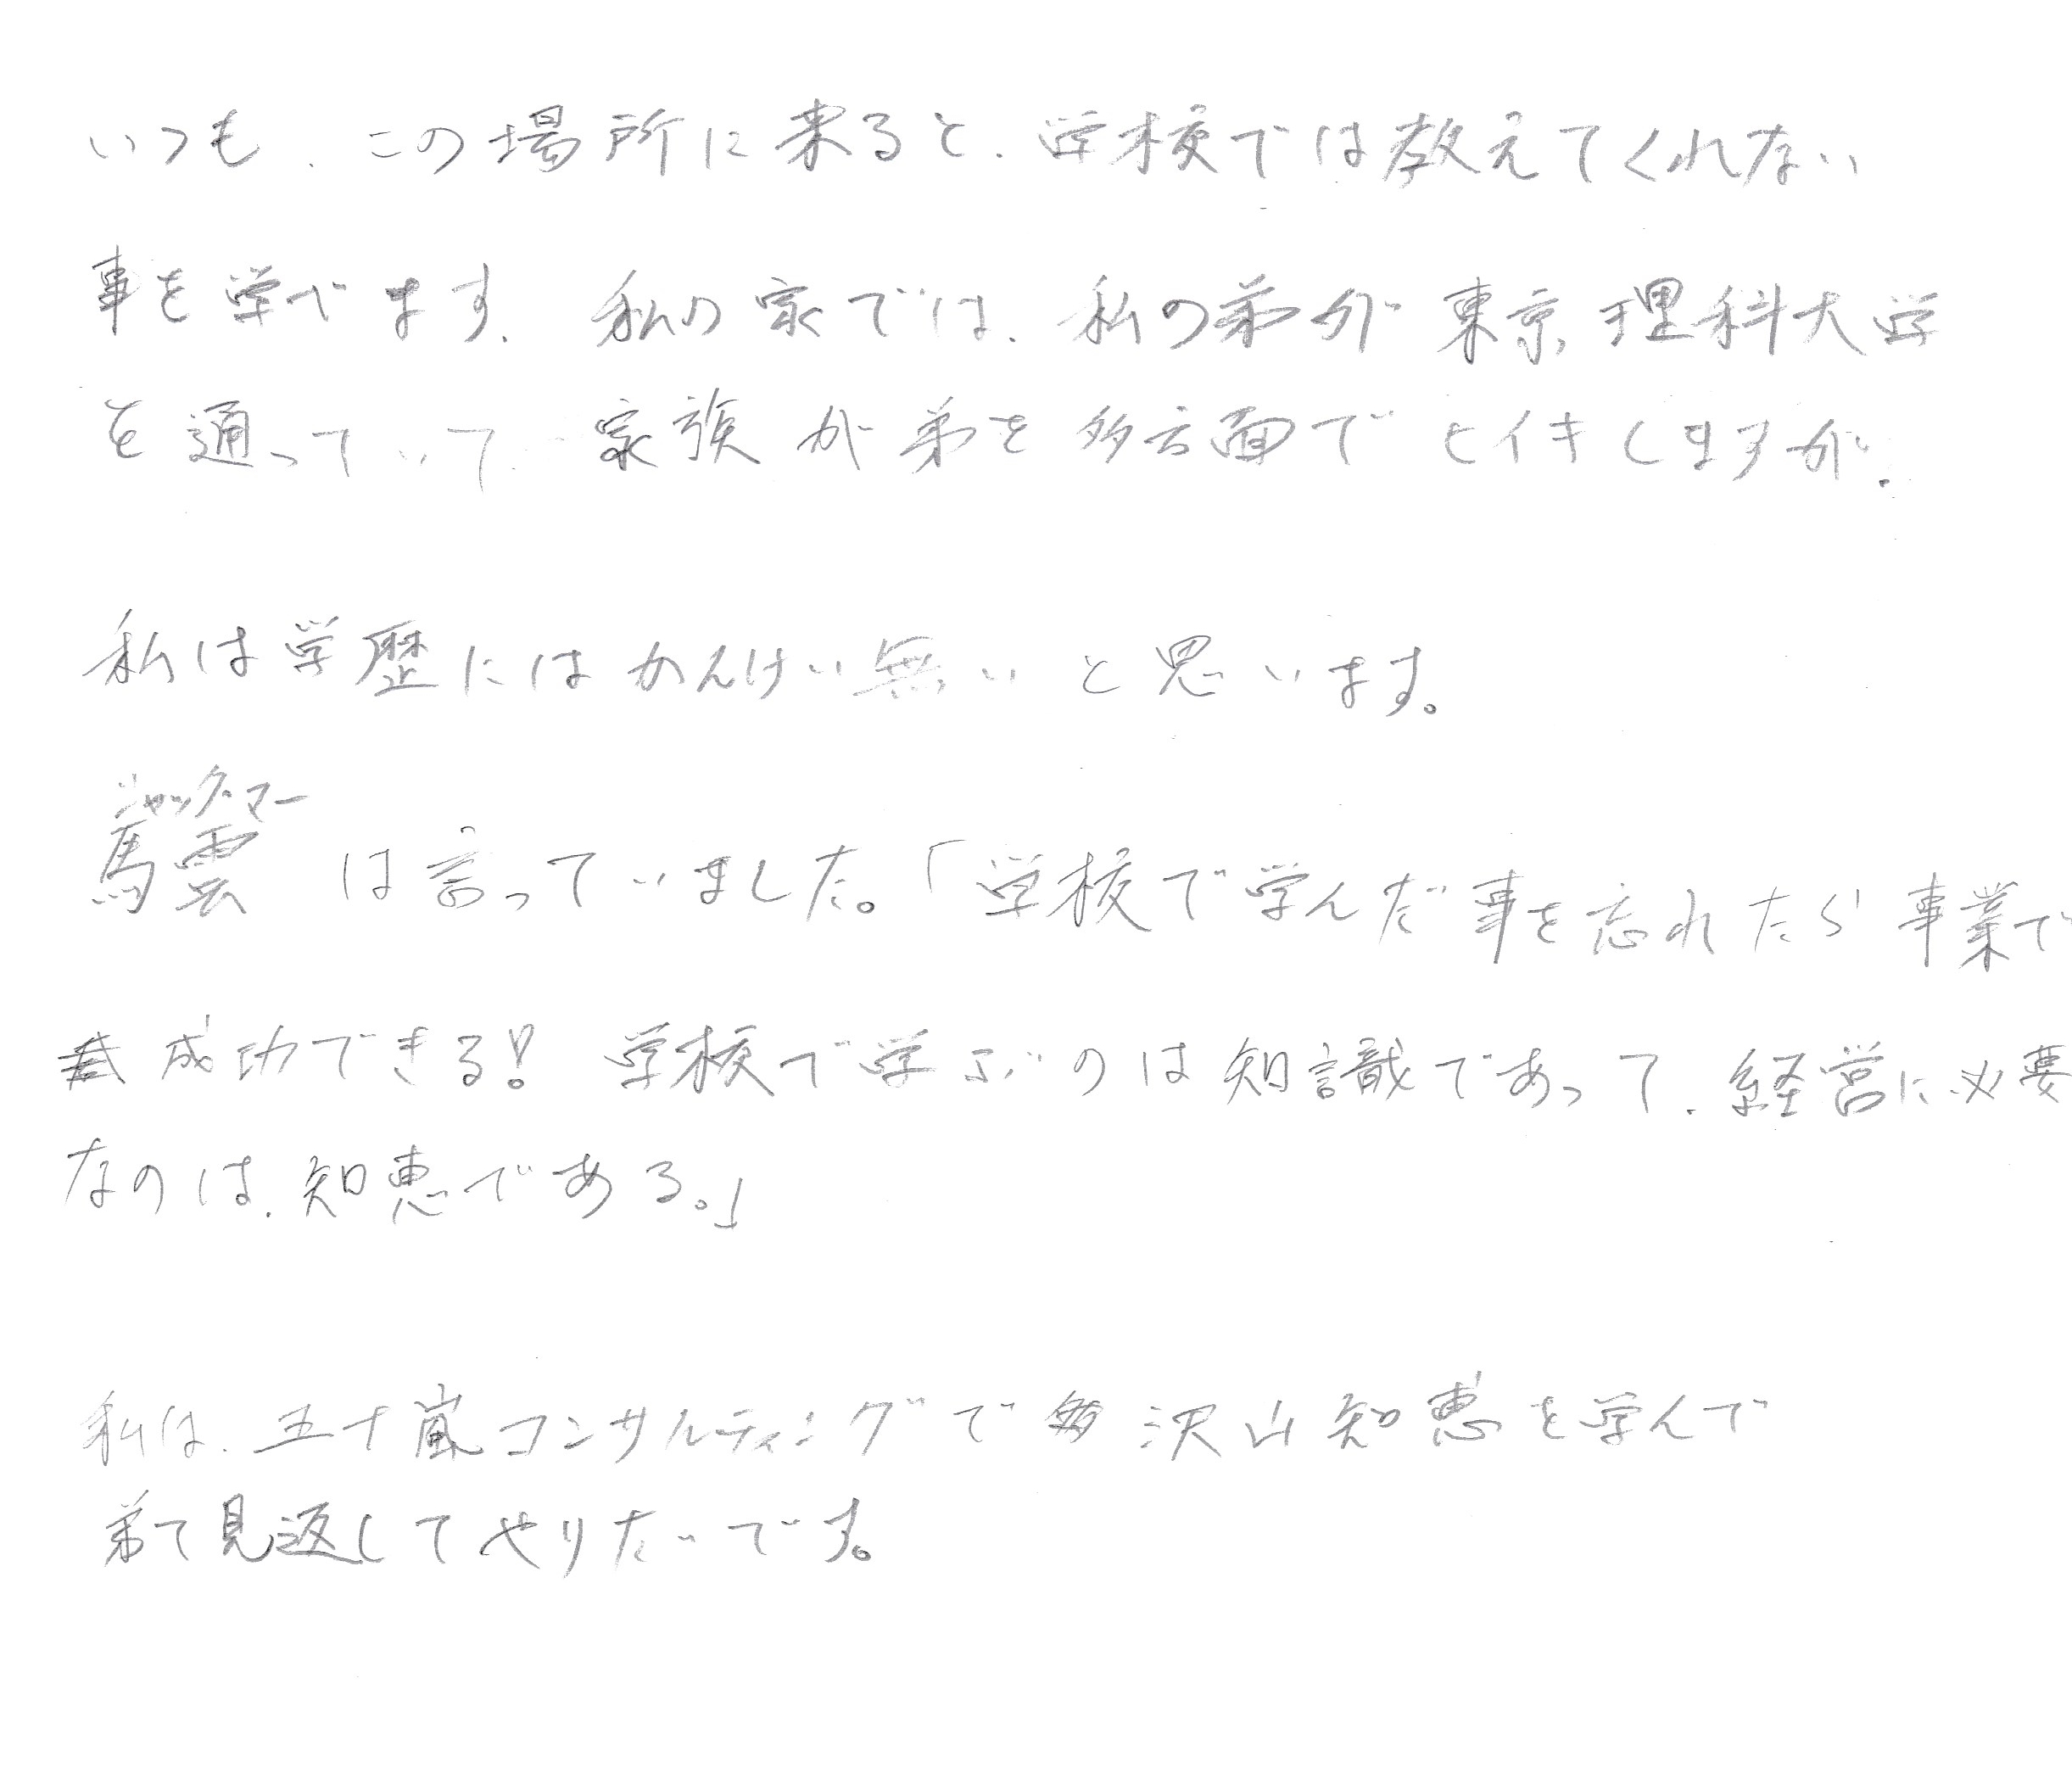 いつも、この場所に来ると、学校では教えてくれない
事を学べます、私の家では、私の弟が東京理科大学
を通っていて、家族が弟を多方面でヒイキしますが、
私は学歴にはかんけい無いと思います。
ジャック・マー
馬雲は言っていました。「学校で学んだ事を忘れたら事業で
成功できる!学校で学ぶのは知識であって、経営に必要
なのは、知恵である。」
私は、五十嵐コンサルティングで沢山知恵を学んで
弟て見返してやりたいです。